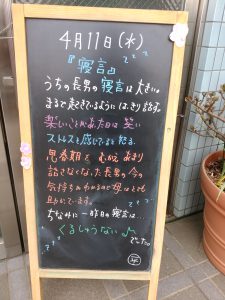 4月11日(水)
『寝言』
うちの長男の寝言は大きい。
まるで起きているようにはっきり話す。
楽しいことがあった日は笑い
ストレスを感じてると怒る。
思春期をむかえあまり
話さなくなった長男の今の
気持ちがわかるので母はとても
助かています。
ちなみに一昨日の寝言は…
くるしゅうない♪
でした